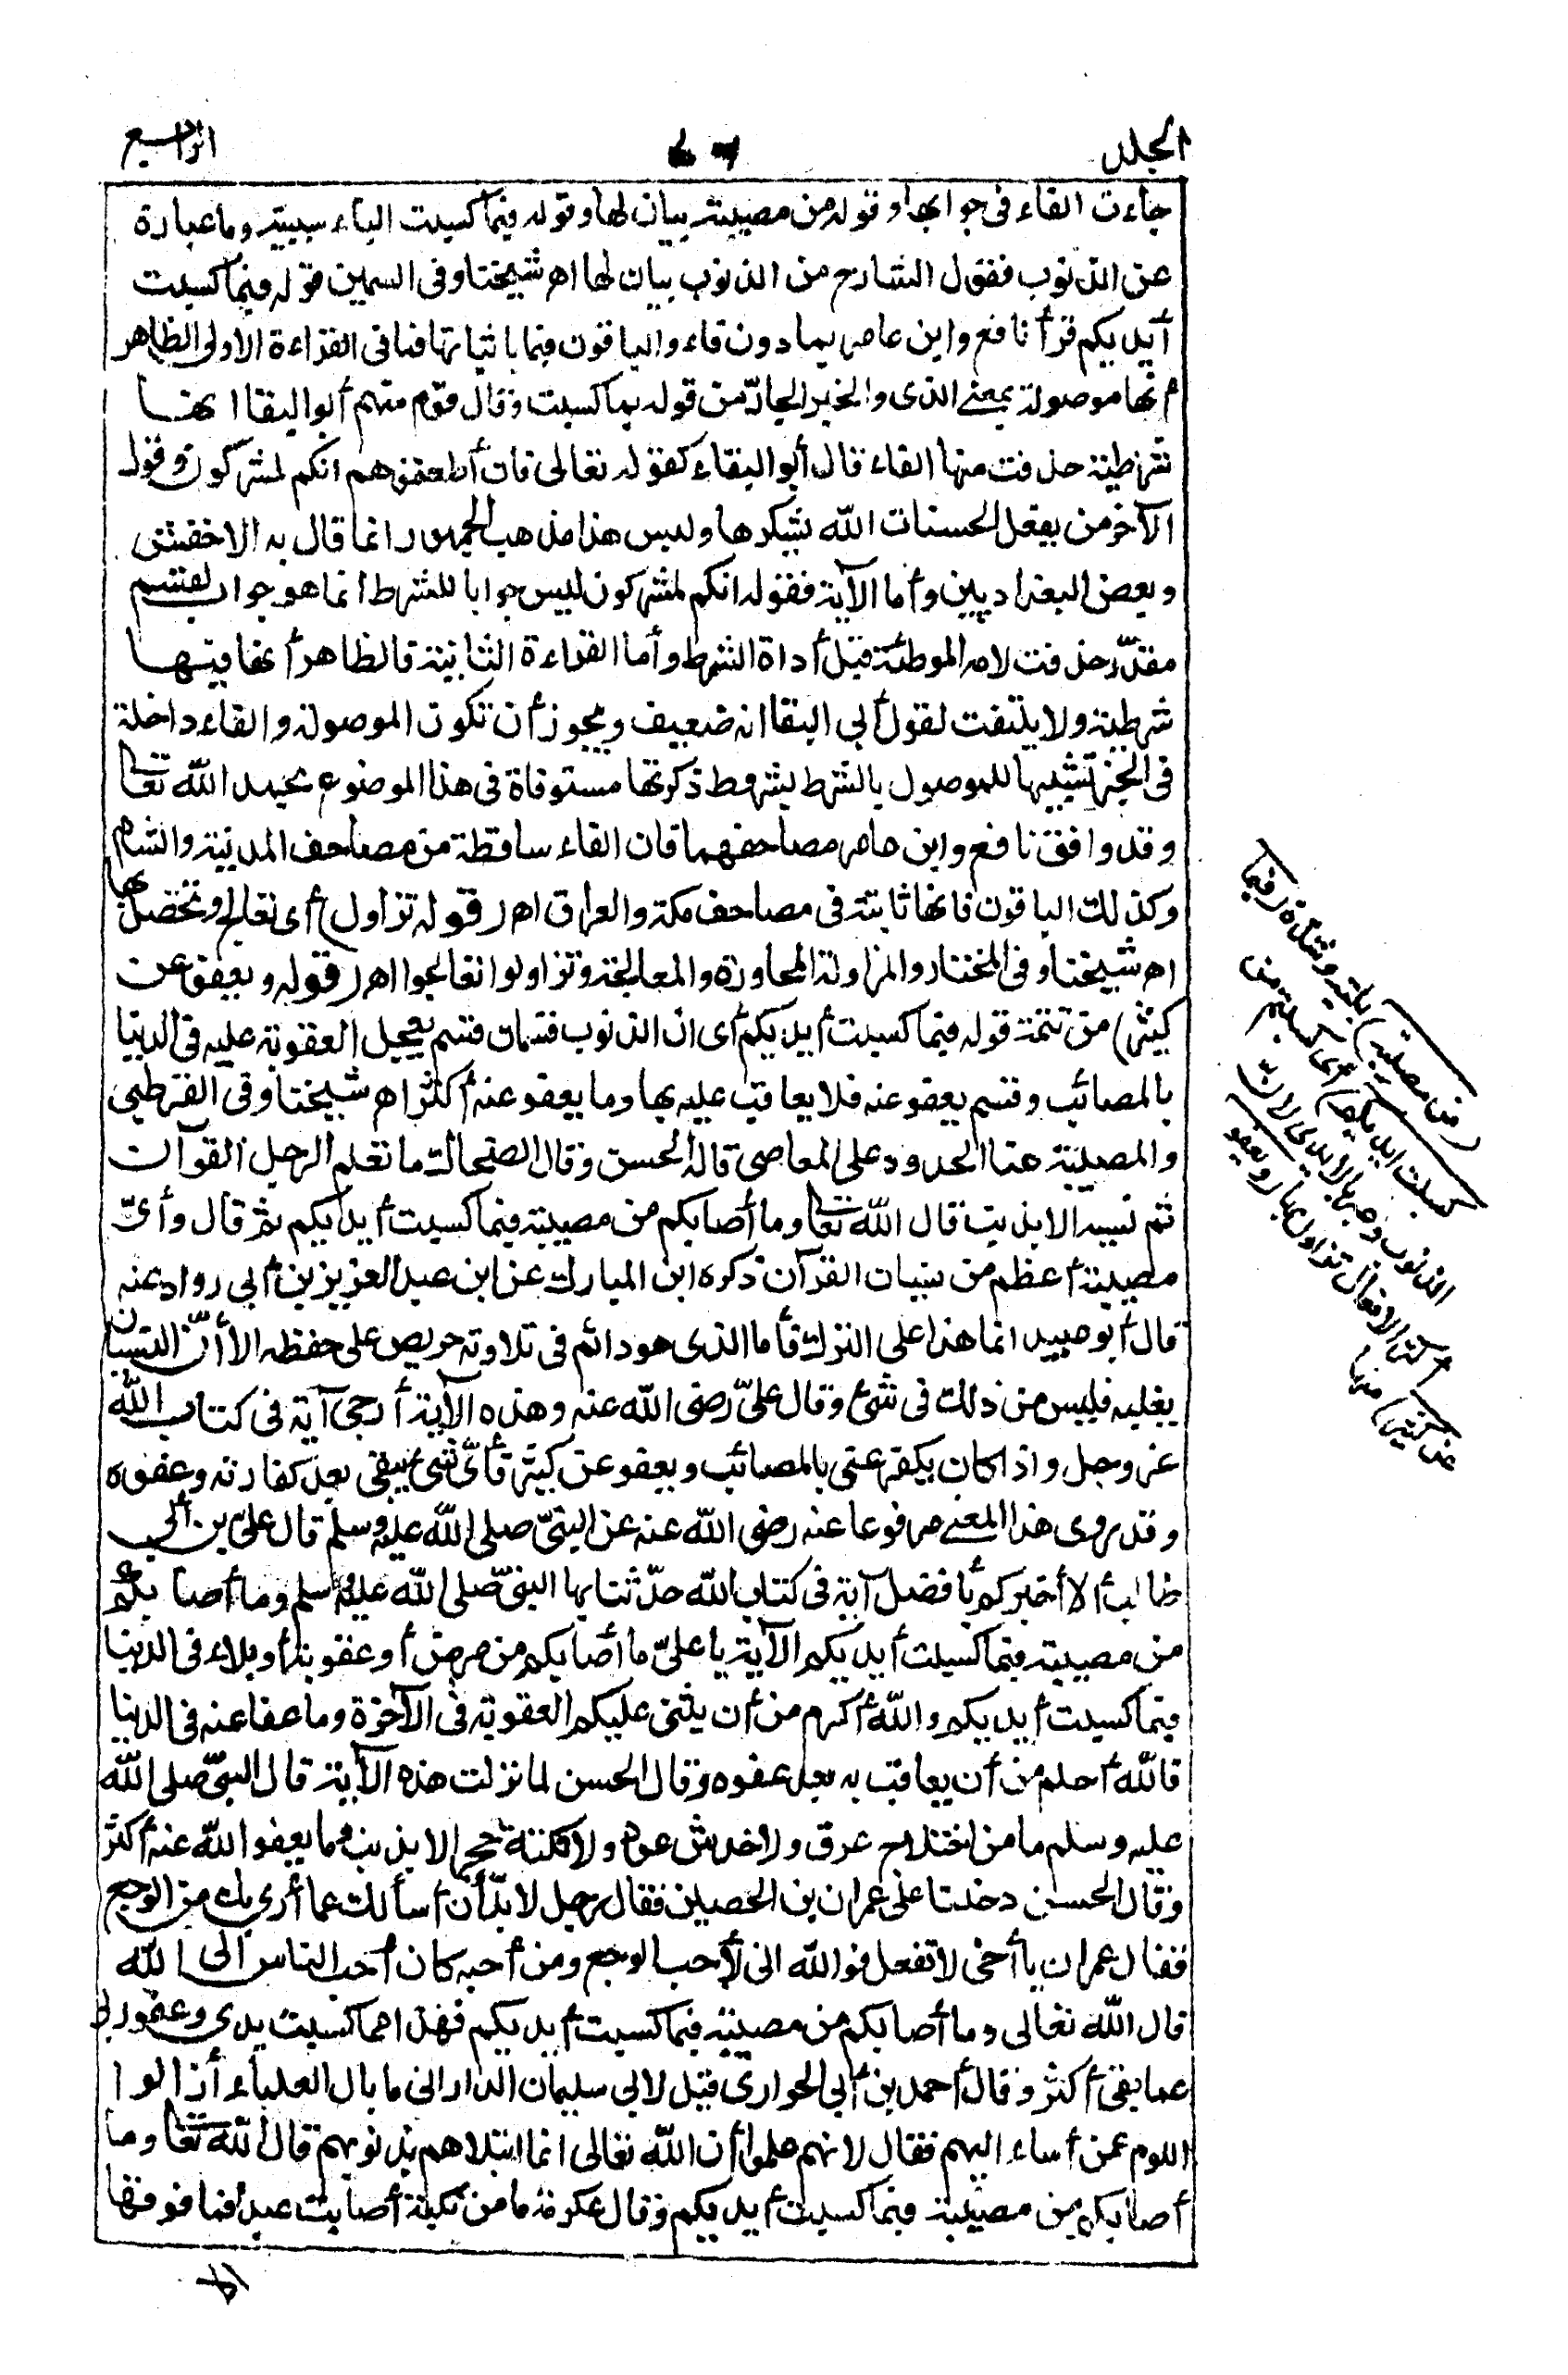 الجلد
٧٦
الرابع
جاءت الفاء فى جوابها وقوله من مصيبة بيان لها وقوله فبما كسبت الباء سببية وما عبارة
عن الذنوب فقول الشارح من الذنوب بيان لها اهـ شيخنا وفى السمين قوله فبما كسبت
أيديكم قرأ نافع وابن عامر بما دون فاء والباقون فبما باثباتها فما فى القراءة الاولى الظاهر
أنها موصولة بمعنى الذى والخبر الجارّ من قوله بما كسبت وقال قوم منهم أبو البقا انها
شرطية حذفت منها الفاء قال أبو البقاء كقوله تعالى فان أطعتموهم انكم لمشركون وقول
الآخر من يفعل الحسنات الله يشكرها وليس هذا مذهب الجمهور انما قال به الاخفش
وبعض البغداديين وأما الآية فقوله انكم لمشركون ليس جوابا للشرط انما هو جواب لقسم
مقدّر حذفت لامه الموطئة قبل أداة الشرط وأما القراءة الثانية فالظاهر أنها فيها
شرطية ولا يلتفت لقول أبى البقا انه ضعيف ويجوز أن تكون الموصولة والفاء داخلة
فى الخبر تشبيها للموصول بالشرط بشروط ذكرتها مستوفاة فى هذا الموضوع بحمد الله تعالى
وقد وافق نافع وابن عامر مصاحفهما فان الفاء ساقطة من مصاحف المدينة والشام
وكذلك الباقون فانها ثابتة فى مصاحف مكة والعراق اهـ (قوله تزاول) أى تعالج وتحصل بها
اهـ شيخنا وفى المختار والمزاولة المحاورة والمعالجة وتزاولوا تعالجوا اهـ (قوله ويعفو عن
كثير) من تتمة قوله فبما كسبت أيديكم أى ان الذنوب قسمان قسم يعجل العقوبة عليه فى الدنيا
بالمصائب وقسم يعفو عنه فلا يعاقب عليه بها وما يعفو عنه أكثر اهـ شيخنا وفى القرطبى
والمصيبة هنا الحدود على المعاصى قاله الحسن وقال الضحاك ما تعلم الرجل القرآن
ثم نسيه الا بذنب قال الله تعالى وما أصابكم من مصيبة فبما كسبت أيديكم ثم قال وأىّ
مصيبة أعظم من نسيان القرآن ذكره ابن المبارك عن ابن عبد العزيز بن أبى رواد عنه
قال أبو عبيد انما هذا على الترك فأما الذى هو دائم فى تلاوته حريص على حفظه الا أنّ النسيان
يغلبه فليس من ذلك فى شئ وقال علىّ رضى الله عنه وهذه الآية أرجى آية فى كتاب الله
عز وجل واذا كان يكفر عنى بالمصائب ويعفو عن كثير فأىّ شئ يبقى بعد كفارته وعفوه
وقد روى هذا المعنى مرفوعا عنه رضى الله عنه عن النبىّ صلى الله عليه وسلم قال علىّ بن أبى
طالب ألا أخبركم بأفضل آية فى كتاب الله حدّثنا بها النبىّ صلى الله عليه وسلم وما أصابكم
من مصيبة فبما كسبت أيديكم الآية يا علىّ ما أصابكم من مرض أو عقوبة أو بلاء فى الدنيا
فبما كسبت أيديكم والله أكرم من أن يثنى عليكم العقوبة فى الآخرة وما عفا عنه فى الدنيا
فالله أحلم من أن يعاقب به بعد عفوه وقال الحسن لما نزلت هذه الآية قال النبىّ صلى الله
عليه وسلم ما من اختلاج عرق ولا خدش عود ولا نكبة حجر الا بذنب وما يعفوا الله عنه أكثر
وقال الحسن دخلنا على عمران بن الحصين فقال رجل لا بدّ أن أسألك عما أرى بك من الوجع
فقال عمران يا أخى لا تفعل فوالله انى لأحب الوجع ومن أحبه كان أحب الناس الى الله
قال الله تعالى وما أصابكم من مصيبة فبما كسبت أيديكم فهذا مما كسبت يدى وعفو ربى
عما بقى أكثر وقال أحمد بن أبى الحوارى قيل لابى سليمان الدارانى ما بال العلماء أزالوا
اللوم عمن أساء اليهم فقال لانهم علموا أن الله تعالى انما ابتلاهم بذنوبهم قال الله تعالى وما
أصابكم من مصيبة فبما كسبت أيديكم وقال عكرمة ما من نكبة أصابت عبدا فما فوقها
الا
(من مصيبة) بلية وشدة (فبما
كسبت أيديكم) أى كسبتم من
الذنوب وعبر بالأيدى لان
أكثر الافعال تزاول بها (ويعفو
عن كثير) منها